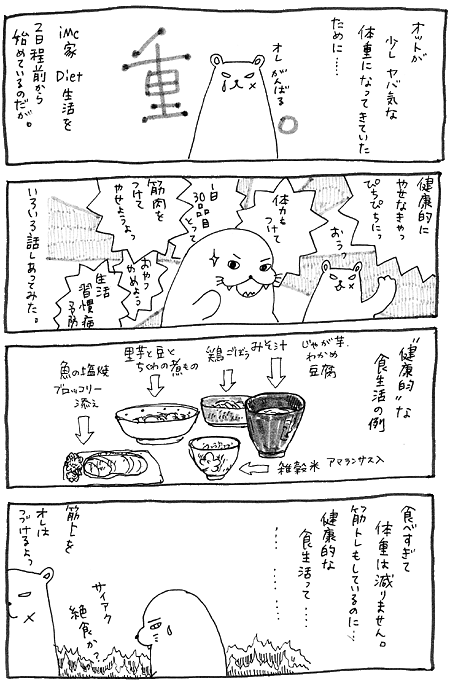 オットが
少し ヤバ気な
体重になってきていた
ために……
オレ がんばる。
重
iMC
家
Diet
生活を
2日程前から
始めているのだが。
健康的に
やせなきゃっ
ぴちぴちにっ
おぅっ
体力も
つけて
1日
30品目
とって
筋肉を
つけて
やせようよっ
おやつ
やめようっ
生活
習慣病
予防
いろいろ話しあってみた。
"健康的"な
食生活の例
じゃが芋、
わかめ
豆腐
みそ汁
鶏ごぼう
里芋と豆と
ちくわの煮もの
魚の塩焼
ブロッコリー
添え
雑穀米 アマランサス入
食べすぎて
体重は減りません。
筋トレもしているのに…
健康的な
食生活って……
…………
筋トレを
オレは
つづけるよっ
サイアク
絶食か?